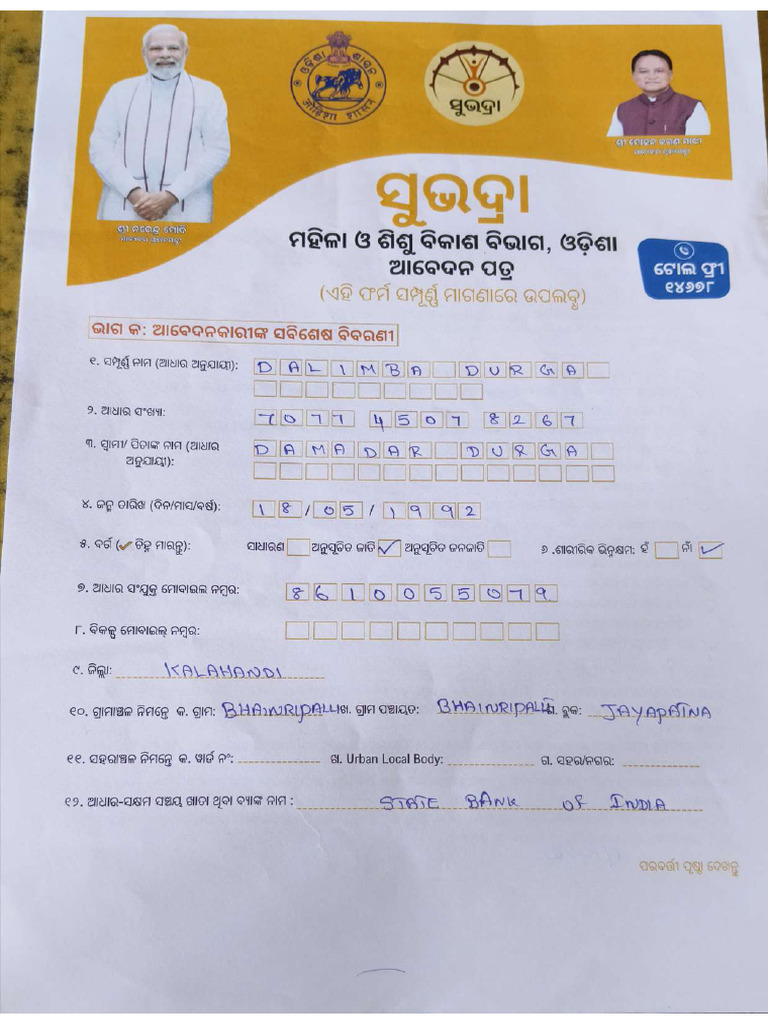 ଓଡ଼ିଶା ଶାସନ
ସୁଭଦ୍ରା
ଶ୍ରୀ ମୋହନ ଚରଣ ମାଝୀ
ଶ୍ରୀ ନରେନ୍ଦ୍ର ମୋଦି
ସୁଭଦ୍ରା
ମହିଳା ଓ ଶିଶୁ ବିକାଶ ବିଭାଗ, ଓଡ଼ିଶା
ଆବେଦନ ପତ୍ର
(ଏହି ଫର୍ମ ସମ୍ପୂର୍ଣ୍ଣ ମାଗଣାରେ ଉପଲବ୍ଧ)
ଟୋଲ ଫ୍ରୀ
୧୪୬୭୮
ଭାଗ କ: ଆବେଦନକାରୀଙ୍କ ସବିଶେଷ ବିବରଣୀ
୧. ସମ୍ପୂର୍ଣ୍ଣ ନାମ (ଆଧାର ଅନୁଯାୟୀ): DALIMBA DURGA
୨. ଆଧାର ସଂଖ୍ୟା: 7077 4507 8267
୩. ସ୍ୱାମୀ/ ପିତାଙ୍କ ନାମ (ଆଧାର DAMADAR DURGA
ଅନୁଯାୟୀ):
୪. ଜନ୍ମ ତାରିଖ (ଦିନ/ମାସ/ବର୍ଷ): 18/05/1992
୫. ବର୍ଗ (✓ ଚିହ୍ନ ମାରନ୍ତୁ): ସାଧାରଣ ଅନୁସୂଚିତ ଜାତି ✓ ଅନୁସୂଚିତ ଜନଜାତି ୬ .ଶାରୀରିକ ଭିନ୍ନକ୍ଷମ: ହଁ ନାଁ ✓
୭. ଆଧାର ସଂଯୁକ୍ତ ମୋବାଇଲ ନମ୍ବର: 8610055079
୮. ବିକଳ୍ପ ମୋବାଇଲ୍ ନମ୍ବର:
୯. ଜିଲ୍ଲା: KALAHANDI
୧୦. ଗ୍ରାମାଞ୍ଚଳ ନିମନ୍ତେ କ. ଗ୍ରାମ: BHAINRIPALLI ଖ. ଗ୍ରାମ ପଞ୍ଚାୟତ: BHAINRIPALLI ଗ. ବ୍ଲକ: JAYAPATNA
୧୧. ସହରାଞ୍ଚଳ ନିମନ୍ତେ କ. ୱାର୍ଡ ନଂ: ଖ. Urban Local Body: ଗ. ସହର/ନଗର:
୧୨. ଆଧାର-ସକ୍ଷମ ସଞ୍ଚୟ ଖାତା ଥିବା ବ୍ୟାଙ୍କ ନାମ : STATE BANK OF INDIA
ପରବର୍ତ୍ତୀ ପୃଷ୍ଠା ଦେଖନ୍ତୁ